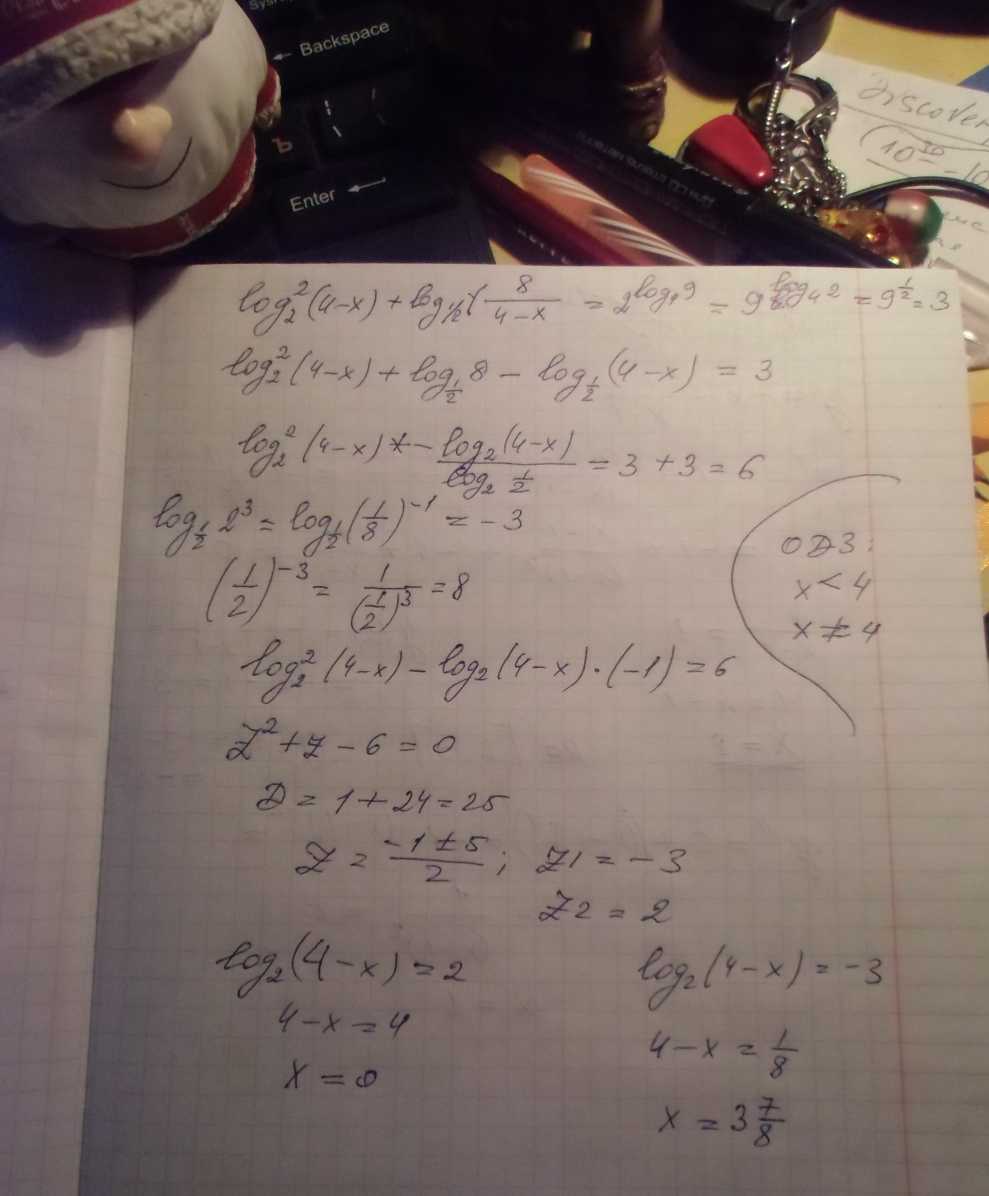 Backspace
Ъ
Enter
Discover
(10 -10
log₂²(4-x) + log₁/₂ 8/(4-x) = 2^(log₄9) = 9^(log₄2) = 9^(1/2) = 3
log₂²(4-x) + log₁/₂ 8 - log₁/₂(4-x) = 3
log₂²(4-x) - log₂(4-x)/(log₂ 1/2) = 3 + 3 = 6
log₁/₂ 2³ = log₁/₂ (1/8)⁻¹ = -3
ОДЗ:
(1/2)⁻³ = 1/(1/2)³ = 8
x < 4
x ≠ 4
log₂²(4-x) - log₂(4-x)·(-1) = 6
z² + z - 6 = 0
D = 1 + 24 = 25
z = (-1 ± 5)/2; z1 = -3
z2 = 2
log₂(4-x) = 2
4-x = 4
x = 0
log₂(4-x) = -3
4-x = 1/8
x = 3 7/8